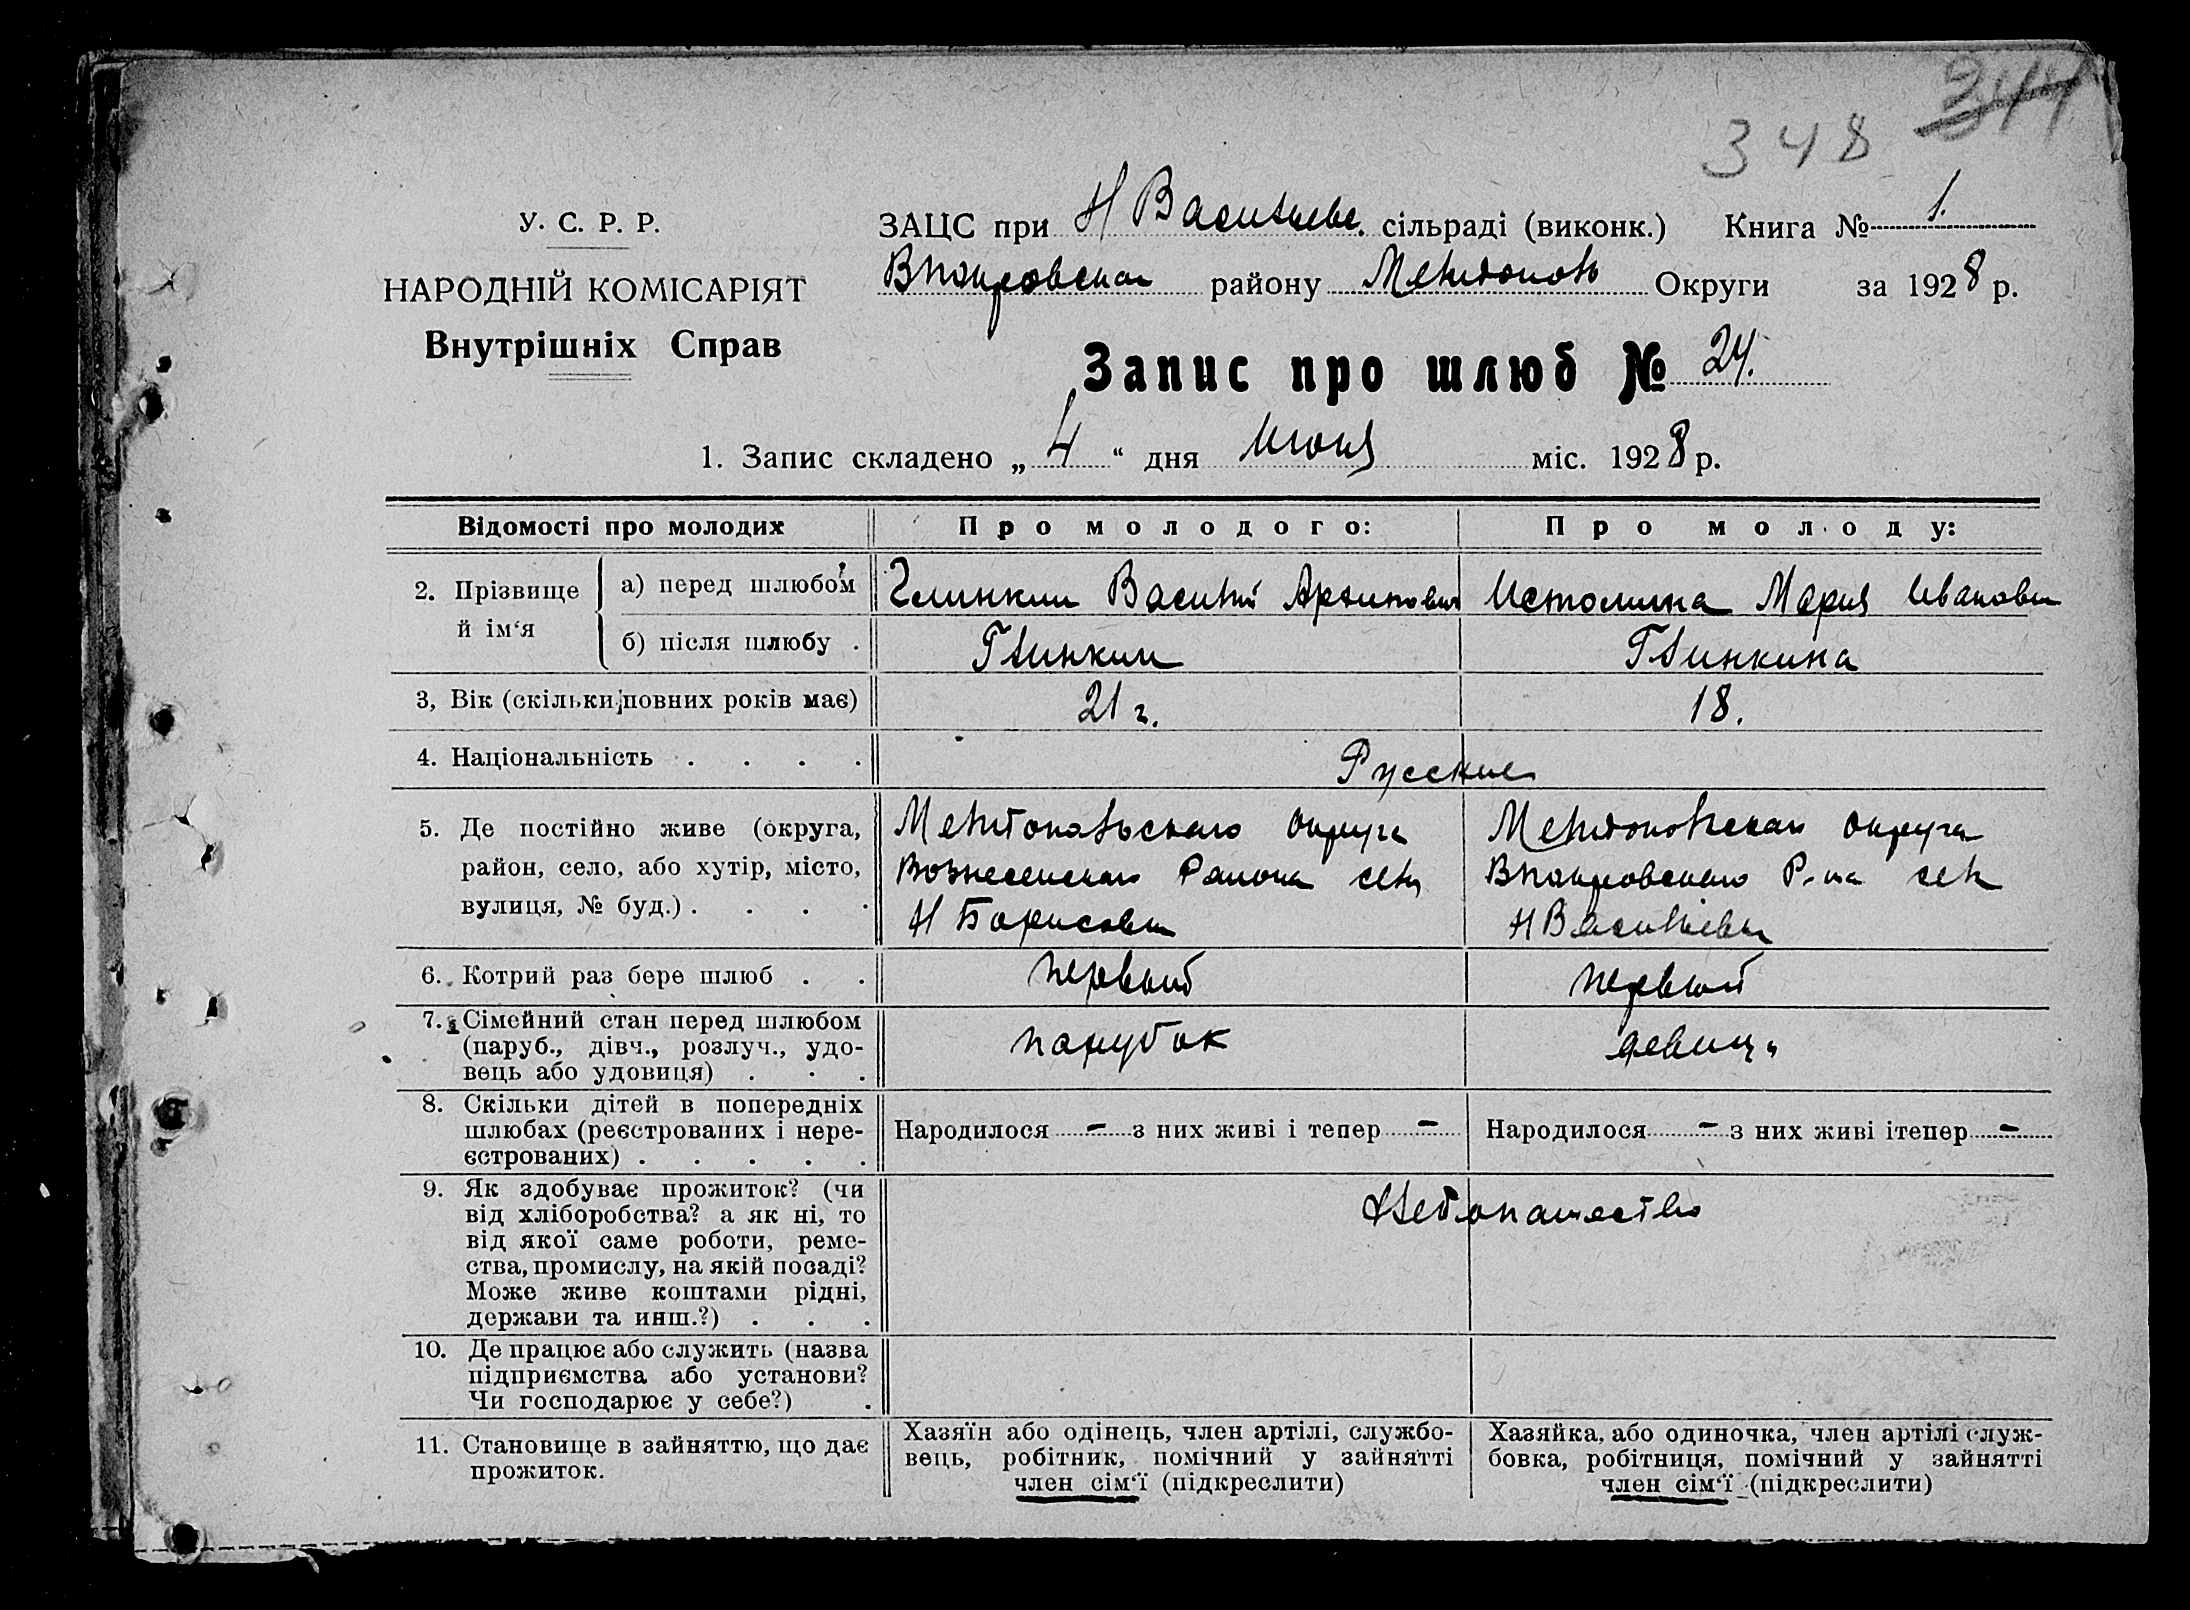 344
348
У. С. Р. Р.
НАРОДНІЙ КОМІСАРІЯТ
Внутрішніх Справ
ЗАЦС при Н Васильев. сільраді (виконк.) Книга № 1.
району Мелитополь Округи за 1928 р.
Запис про шлюб № 24.
1. Запис складено „ 4 “ дня Июня міс. 1928 р.
Відомості про молодих Про молодого: Про молоду:
2. Прізвище й ім‘я
а) перед шлюбом Глинкин Василий Архипович Истомина Мария Ивановн
б) після шлюбу . Глинкин Глинкина
3, Вік (скільки повних років має) 21 г. 18.
4. Національність . . . . Русские
5. Де постійно живе (округа,
район, село, або хутір, місто,
вулиця, № буд.) . . . .
Мелитопольского округа
Вознесенского Района села
Н Борисовки
Мелитопольского округа
Впокровского Р-на села
Н Васильевки
6. Котрий раз бере шлюб . . первый первый
7. Сімейний стан перед шлюбом
(паруб., дівч., розлуч., удо-
вець або удовиця) . . .
парубок девица
8. Скільки дітей в попередніх
шлюбах (реєстрованих і нере-
єстрованих) . . . . .
Народилося - з них живі і тепер - Народилося - з них живі ітепер -
9. Як здобуває прожиток? (чи
від хліборобства? а як ні, то
від якої саме роботи, реме-
ства, промислу, на якій посаді?
Може живе коштами рідні,
держави та инш.?) . . .
Хлебопашество
10. Де працює або служить (назва
підприємства або установи?
Чи господарює у себе?) .
11. Становище в зайняттю, що дає
прожиток.
Хазяїн або одінець, член артілі, службо-
вець, робітник, помічний у зайнятті
член сім‘ї (підкреслити)
Хазяйка, або одиночка, член артілі служ-
бовка, робітниця, помічний у зайнятті
член сім‘ї (підкреслити)